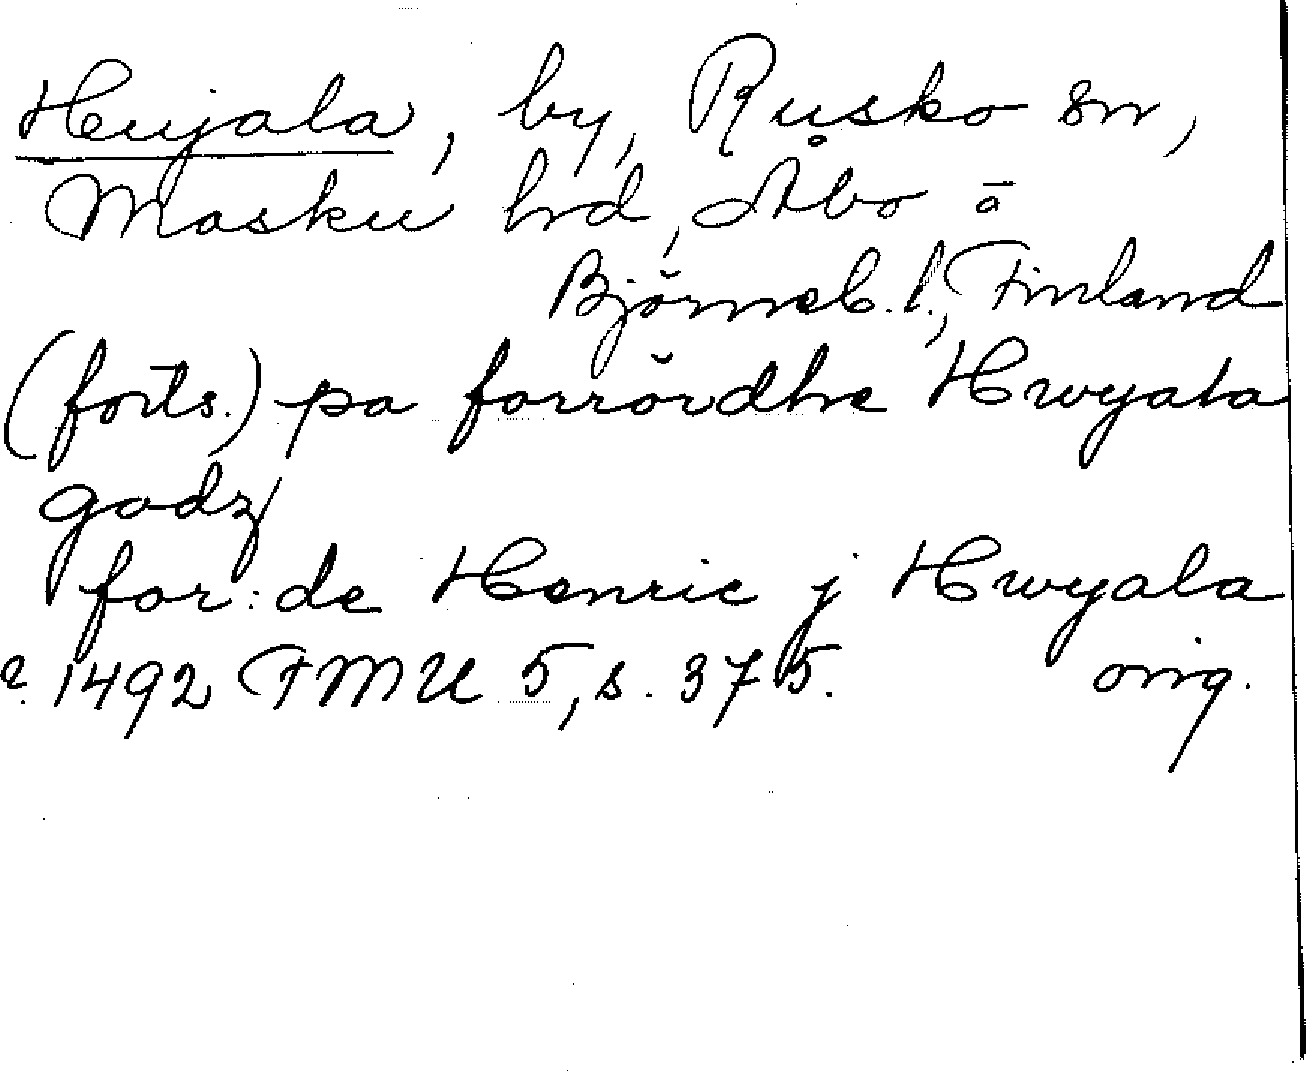 Heujala, by, Rusko sn,
Masku hrd, Åbo o
Björneb. l., Finland
(forts.) pa forrördhe Hwyala
godz
for: de Henric j Hwyala
1492 FMU 5, s. 375. orig.